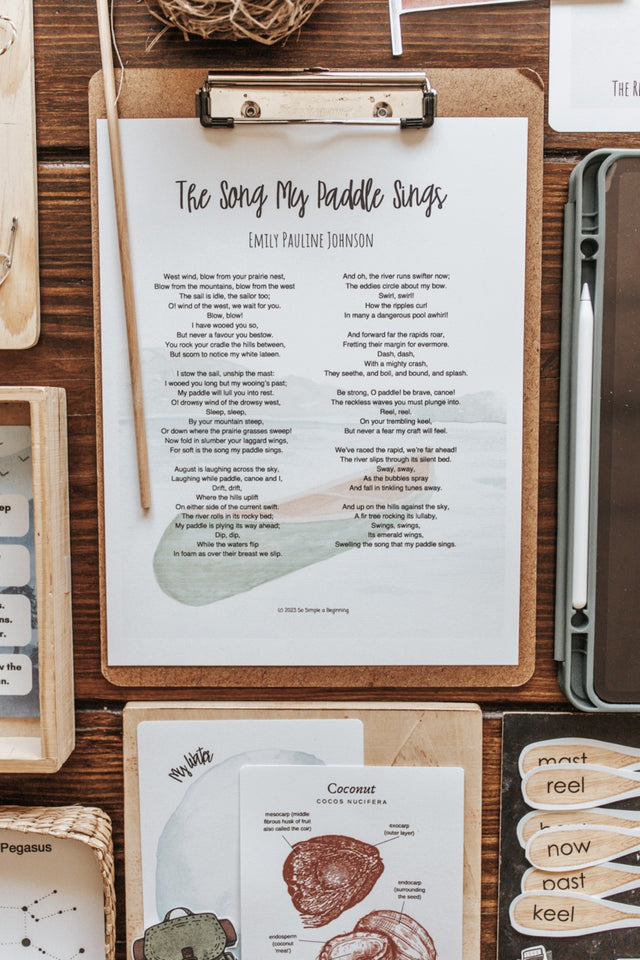 The Song My Paddle Sings
Emily Pauline Johnson
West wind, blow from your prairie nest,
Blow from the mountains, blow from the west
The sail is idle, the sailor too;
O! wind of the west, we wait for you.
Blow, blow!
I have wooed you so,
But never a favour you bestow.
You rock your cradle the hills between,
But scorn to notice my white lateen.
I stow the sail, unship the mast:
I wooed you long but my wooing's past;
My paddle will lull you into rest.
O! drowsy wind of the drowsy west,
Sleep, sleep,
By your mountain steep,
Or down where the prairie grasses sweep!
Now fold in slumber your laggard wings,
For soft is the song my paddle sings.
August is laughing across the sky,
Laughing while paddle, canoe and I,
Drift, drift,
Where the hills uplift
On either side of the current swift.
The river rolls in its rocky bed;
My paddle is plying its way ahead;
Dip, dip,
While the waters flip
In foam as over their breast we slip.
And oh, the river runs swifter now;
The eddies circle about my bow.
Swirl, swirl!
How the ripples curl
In many a dangerous pool awhirl!
And forward far the rapids roar,
Fretting their margin for evermore.
Dash, dash,
With a mighty crash,
They seethe, and boil, and bound, and splash.
Be strong, O paddle! be brave, canoe!
The reckless waves you must plunge into.
Reel, reel.
On your trembling keel,
But never a fear my craft will feel.
We've raced the rapid, we're far ahead!
The river slips through its silent bed.
Sway, sway,
As the bubbles spray
And fall in tinkling tunes away.
And up on the hills against the sky,
A fir tree rocking its lullaby,
Swings, swings,
Its emerald wings,
Swelling the song that my paddle sings.
(c) 2023 So Simple a Beginning
The
My Water
Coconut
COCOS NUCIFERA
mesocarp (middle
fibrous husk of fruit
also called the coir)
exocarp
(outer layer)
endocarp
(surrounding
the seed)
endosperm
(coconut
'meat')
Pegasus
the
mast
reel
now
past
keel